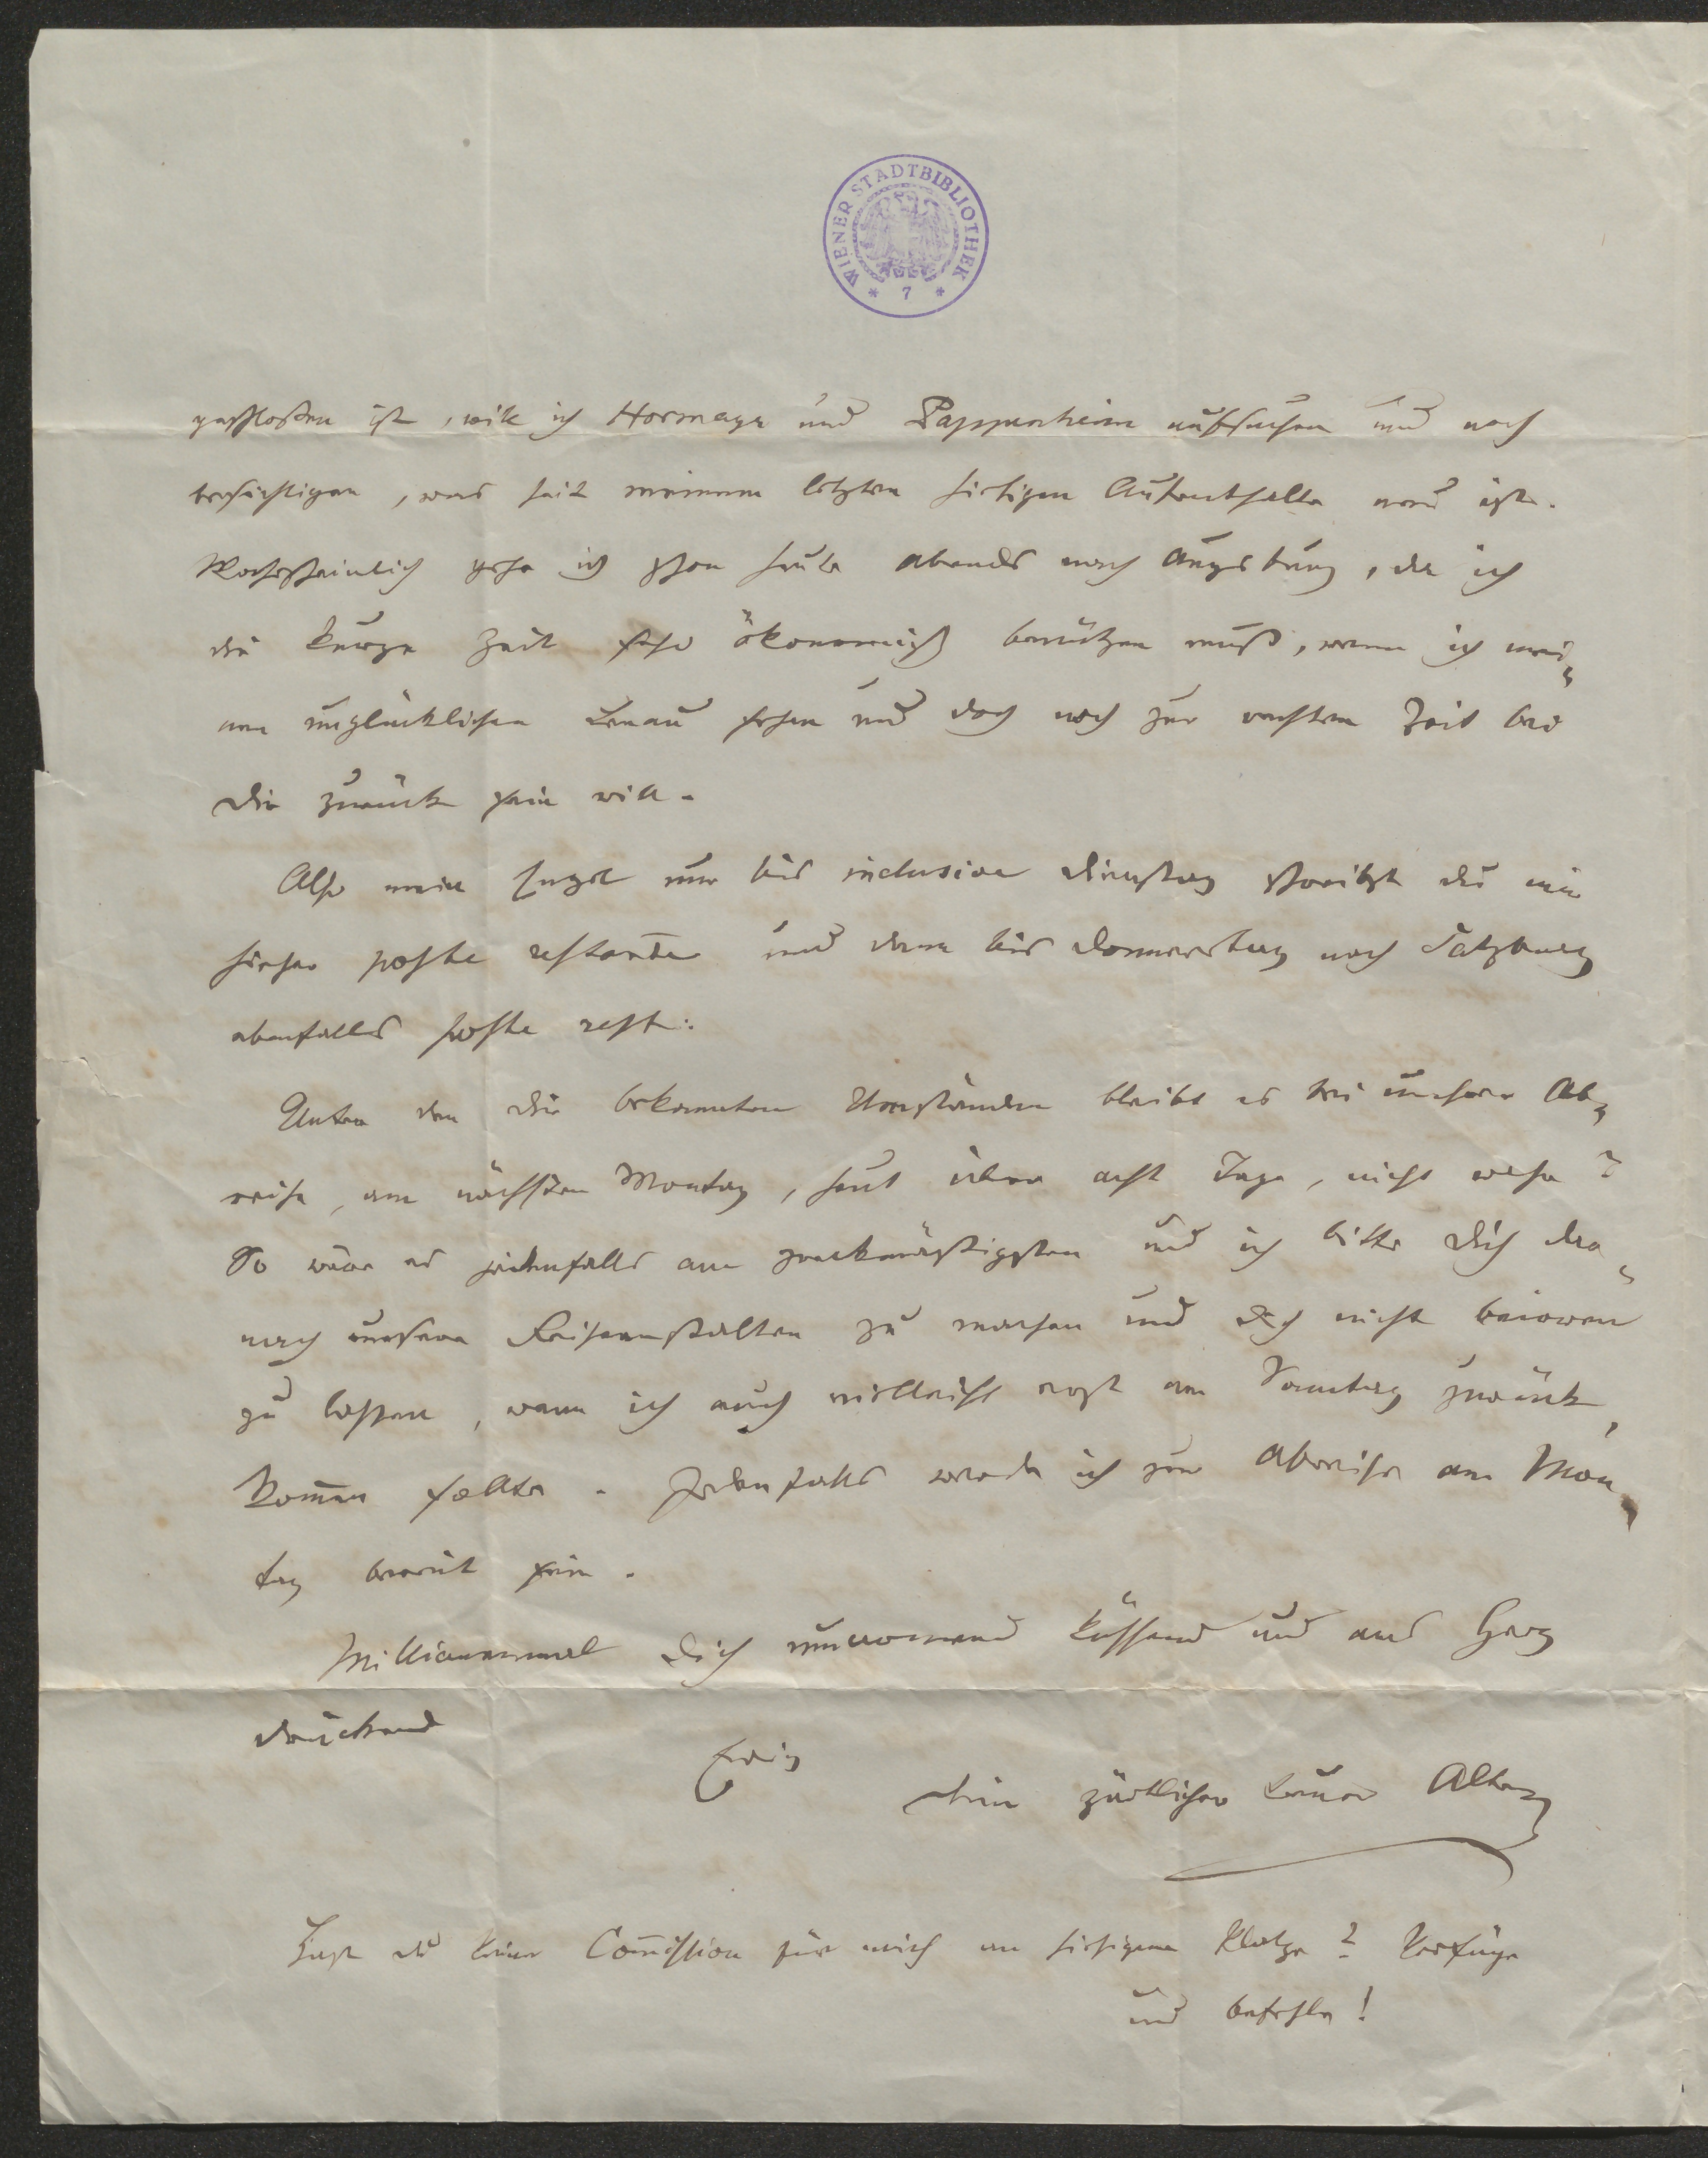 WIENER STADTBIBLIOTHEK
* 7 *
geschloßen ist, will ich Hormayr und Pappenheim aufsuchen und noch
besichtigen, was seit meinem letzten hiesigen Aufenthalte neu ist.
Warscheinlich gehe ich schon heute abends nach Augsburg, da ich
die kurze Zeit sehr ökonomisch benützen muß, wenn ich mei-
nen unglücklichen Lenau sehen und doch noch zur rechten Zeit bei
Dir zurück sein will.
Also mein Engel nur bis inclusive Dienstag schreibst du mir
hieher poste restante und dann bis Donnerstag nach Salzburg
ebenfalls poste rest:
Unter den Dir bekannten Umständen bleibt es bei unserer Ab-
reise, am nächsten Montag, heut über acht Tage, nicht wahr?
So wäre es jedenfalls am zweckmäßigsten und ich bitte Dich dar-
nach unsere Reiseanstalten zu machen und dich nicht beirren
zu lassen, wenn ich auch vielleicht erst am Sonntag zurück-
kom̄en sollte. Jedenfalls werde ich zur Abreise am Mon-
tag bereit sein.
Millionenmal Dich umarmend küssend und ans Herz
drückend
Ewig
Dein zärtlicher treuer Alter
Hast du keine Com̄ission für mich am hiesigen Platze? Verfüge
und befehle!